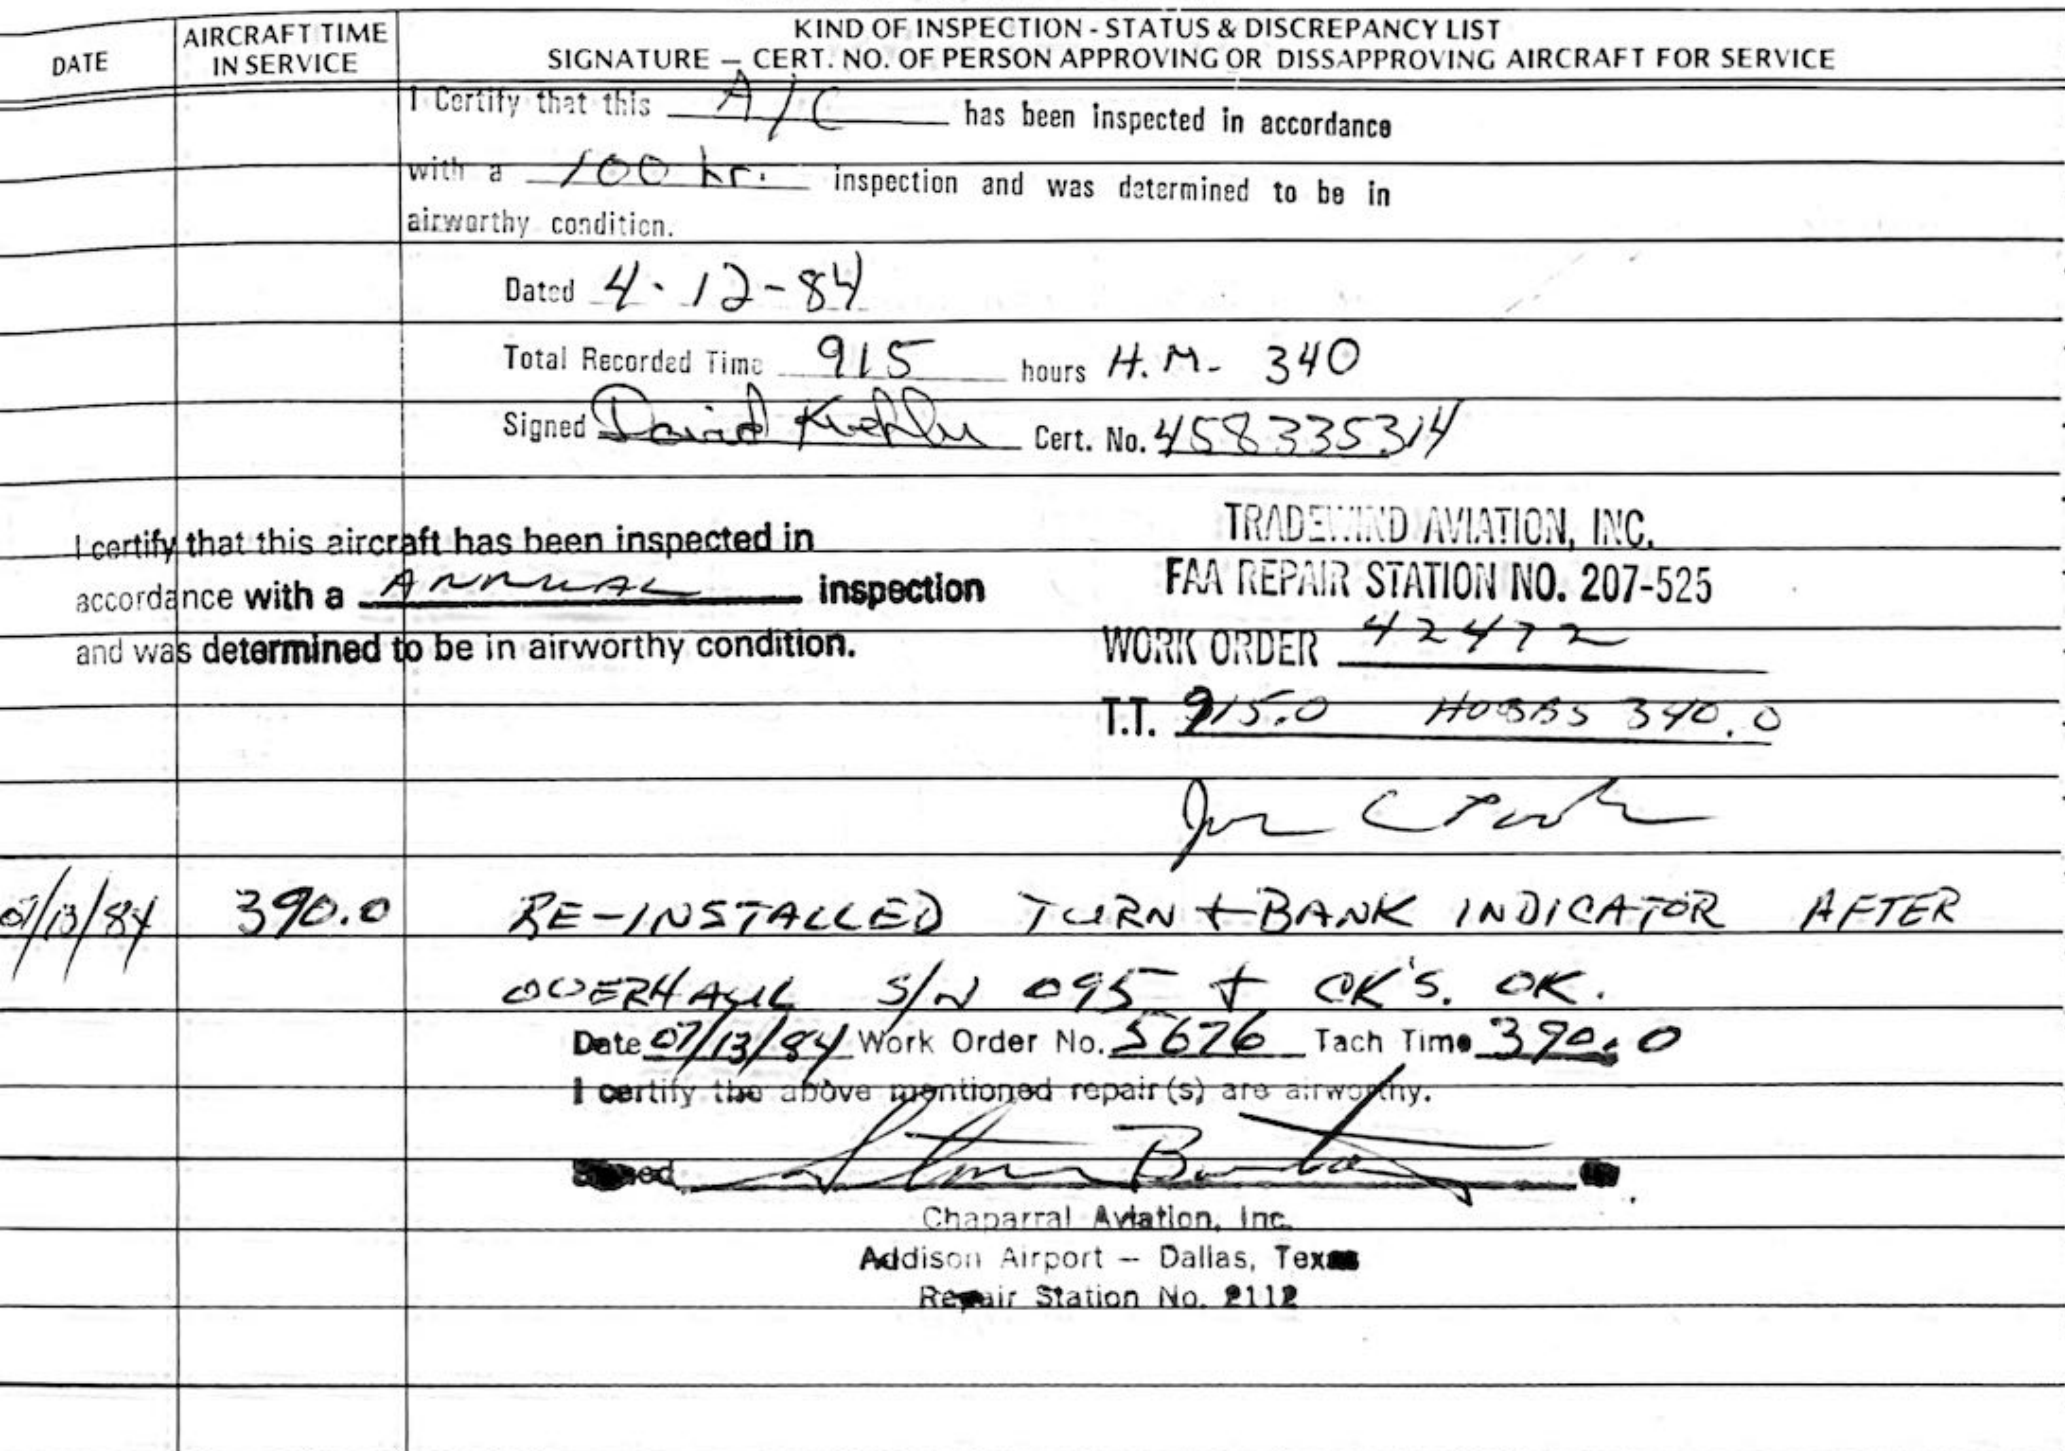 DATE
AIRCRAFT TIME IN SERVICE
KIND OF INSPECTION - STATUS & DISCREPANCY LIST
SIGNATURE — CERT. NO. OF PERSON APPROVING OR DISSAPPROVING AIRCRAFT FOR SERVICE
I Certify that this A/C has been inspected in accordance
with a 100 hr. inspection and was determined to be in
airworthy condition.
Dated 4-12-84
Total Recorded Time 915 hours H.M. 340
Signed David Cert. No. 458335314
I certify that this aircraft has been inspected in
accordance with a ANNUAL inspection
and was determined to be in airworthy condition.
TRADEWIND AVIATION, INC.
FAA REPAIR STATION NO. 207-525
WORK ORDER 42472
T.T. 915.0 HOBBS 340.0
07/13/84 390.0 RE-INSTALLED TURN + BANK INDICATOR AFTER
OVERHAUL S/N 095 + CK'S. OK.
Date 07/13/84 Work Order No. 5676 Tach Time 390.0
I certify the above mentioned repair(s) are airworthy.
Signed
Chaparral Aviation, Inc.
Addison Airport — Dallas, Texas
Repair Station No. 2112